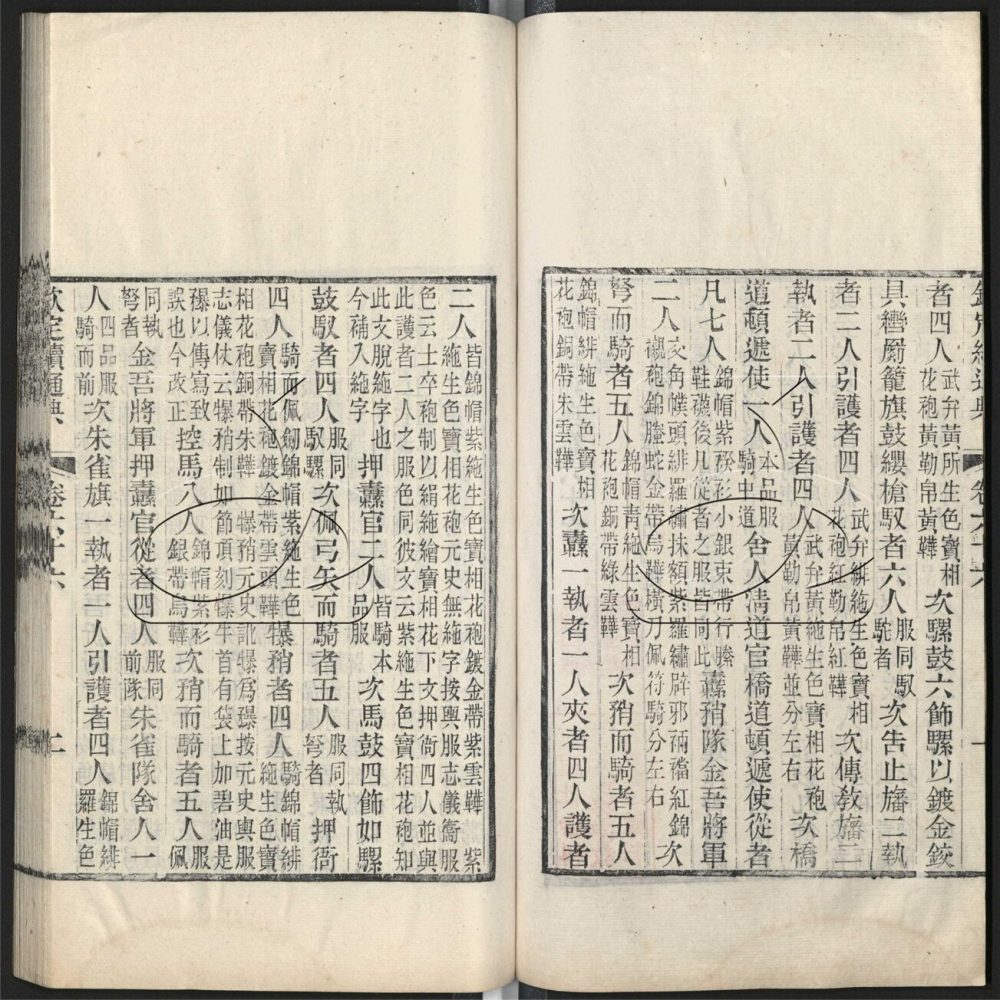 者四人武弁黃所生色寶相花袍黃勒帛黃鞾次騾鼓六飾騾以鍍金鉸
具轡罽籠旗鼓纓槍馭者六人服同馭駝者次告止旛二執
者二人引護者四人武弁緋絁生色寶相花袍紅勒帛紅鞾次傳敎旛二
執者二人引護者四人武弁黃絁生色寶相花袍黃勒帛黃鞾並分左右次橋
道頓遞使一人本品服騎中道舍人淸道官橋道頓遞使從者
凡七人錦帽紫衫小銀束帶行縢鞋襪後凡從者之服皆同此纛矟隊金吾將軍
二人交角幞頭緋羅繡抹額紫羅繡辟邪兩襠紅錦襯袍錦螣蛇金帶烏鞾橫刀佩符騎分左右次
弩而騎者五人錦帽靑絁生色寶相花袍銅帶綠雲鞾次矟而騎者五人
錦帽緋絁生色寶相花袍銅帶朱雲鞾次纛一執者一人夾者四人護者
二人皆錦帽紫絁生色寶相花袍鍍金帶紫雲鞾紫絁生色寶相花袍元史無絁字按輿服志儀衞服
色云士卒袍制以絹絁繪寶相花下文押衙四人並與此護者二人之服色同彼文云紫絁生色寶相花袍知
此文脫絁字也今補入絁字押纛官二人皆騎本品服次馬鼓四飾如騾
鼓馭者四人服同馭騾次佩弓矢而騎者五人服同執弩者押衙
四人騎而佩劒錦帽紫絁生色寶相花袍鍍金帶雲頭鞾犦矟者四人騎錦帽緋絁生色寶
相花袍銅帶朱鞾犦矟元史訛犦爲按元史輿服志儀仗云犦矟制如節頂刻犦牛首有袋上加碧油是
以傳寫致誤也今改正控馬八人錦帽紫衫銀帶烏鞾次矟而騎者五人佩
同執弩者金吾將軍押纛官從者四人服同前隊朱雀隊舍人一
人四品服騎而前次朱雀旗一執者一人引護者四人錦帽緋羅生色
欽定續通典 卷六十六 二